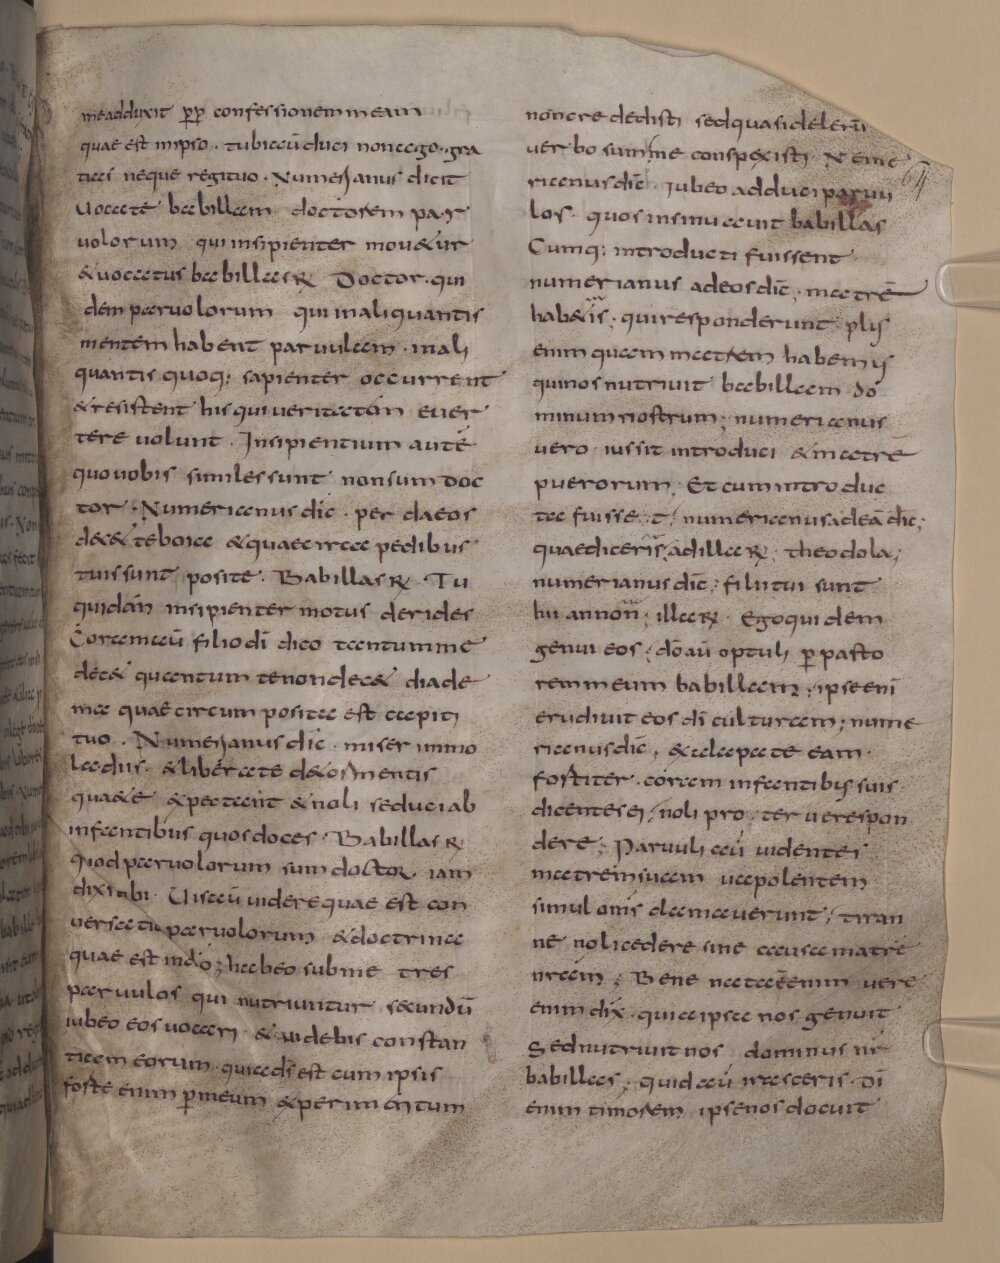 me adduxit ꝑ ꝑ confessionem meam
quae est in ipso · tu biccū duci non ego · gra
ticis neque regi tuo · Numerianus dicit
Uocate babillam doctorem par
uolorum qui insipienter mouetur
& uocatus babillas R̃ Doctor · qui
dem paruolorum qui in aliquantis
mentem habent paruulam · in ali
quantis quoq; sapienter occurrent
& resistent his qui ueritatem euer
tere uolunt · Insipientium autē
quo uobis similes sunt non sum doc
tor · Numerianus dic̄ · per da eos
tuis sunt posite · Babillas R̃ · Tu
quidem insipienter motus derides
Coram eū filio dī dico tantum me
dec& quantum te non dec& diade
ma quae circum posita est capiti
tuo · Numerianus dic̄ · miser immo
la diis · & liberate de tormentis
quae & expectent & noli seduci ab
infantibus quos doces · Babillas R̃
Quod paruolorum sum doctor iam
dixi tibi · Uis aū uidere quae est con
uersatio paruolorum & doctrina
quae est in dō; habeo sub me tres
paruulos qui nutriuntur secundū
iubeo eos uocari · & audebis constan
tiam eorum · quia dš est cum ipsis
forte enim ꝑ meum experimentum
non credidisti sed quasi delerū
uerbo sum me conspexisti · Nume
rianus dic̄ · iubeo adduci paruu
los · quos insinuauit babillas
Cumq; introducti fuissent
numerianus ad eos dic̄; matrē
hab&is; qui responderunt plus
enim quam matrem habemus
qui nos nutriuit babillam do
minum nostrum; numerianus
uero iussit introduci & matrē
puerorum; Et cum introduc
ta fuisset; numerianus ad eā dic̄;
quae diceris; ad illa R̃ · theodola;
numerianus dic̄; filii tui sunt
hii an non; illa R̃ · Ego quidem
genui eos; dō aū optuli ꝑ pasto
rem meum babillam; ipse enī
erudiuit eos dī culturam; nume
rianus dic̄; & alapate eam ·
fortiter · coram infantibus suis
dicentes ei; noli proterue respon
dere; Paruuli aū uidentes
matrem suam uapolentem
simul omīs clamauerunt; tiran
ne noli cedere sine causa matrē
nr̄am; Bene nata est enim uere
enim dix · quia ipsa nos genuit
Sed nutriuit nos dominus nr̄
babillas; quid aū irasceris · Dī
enim timorem ipse nos docuit
64